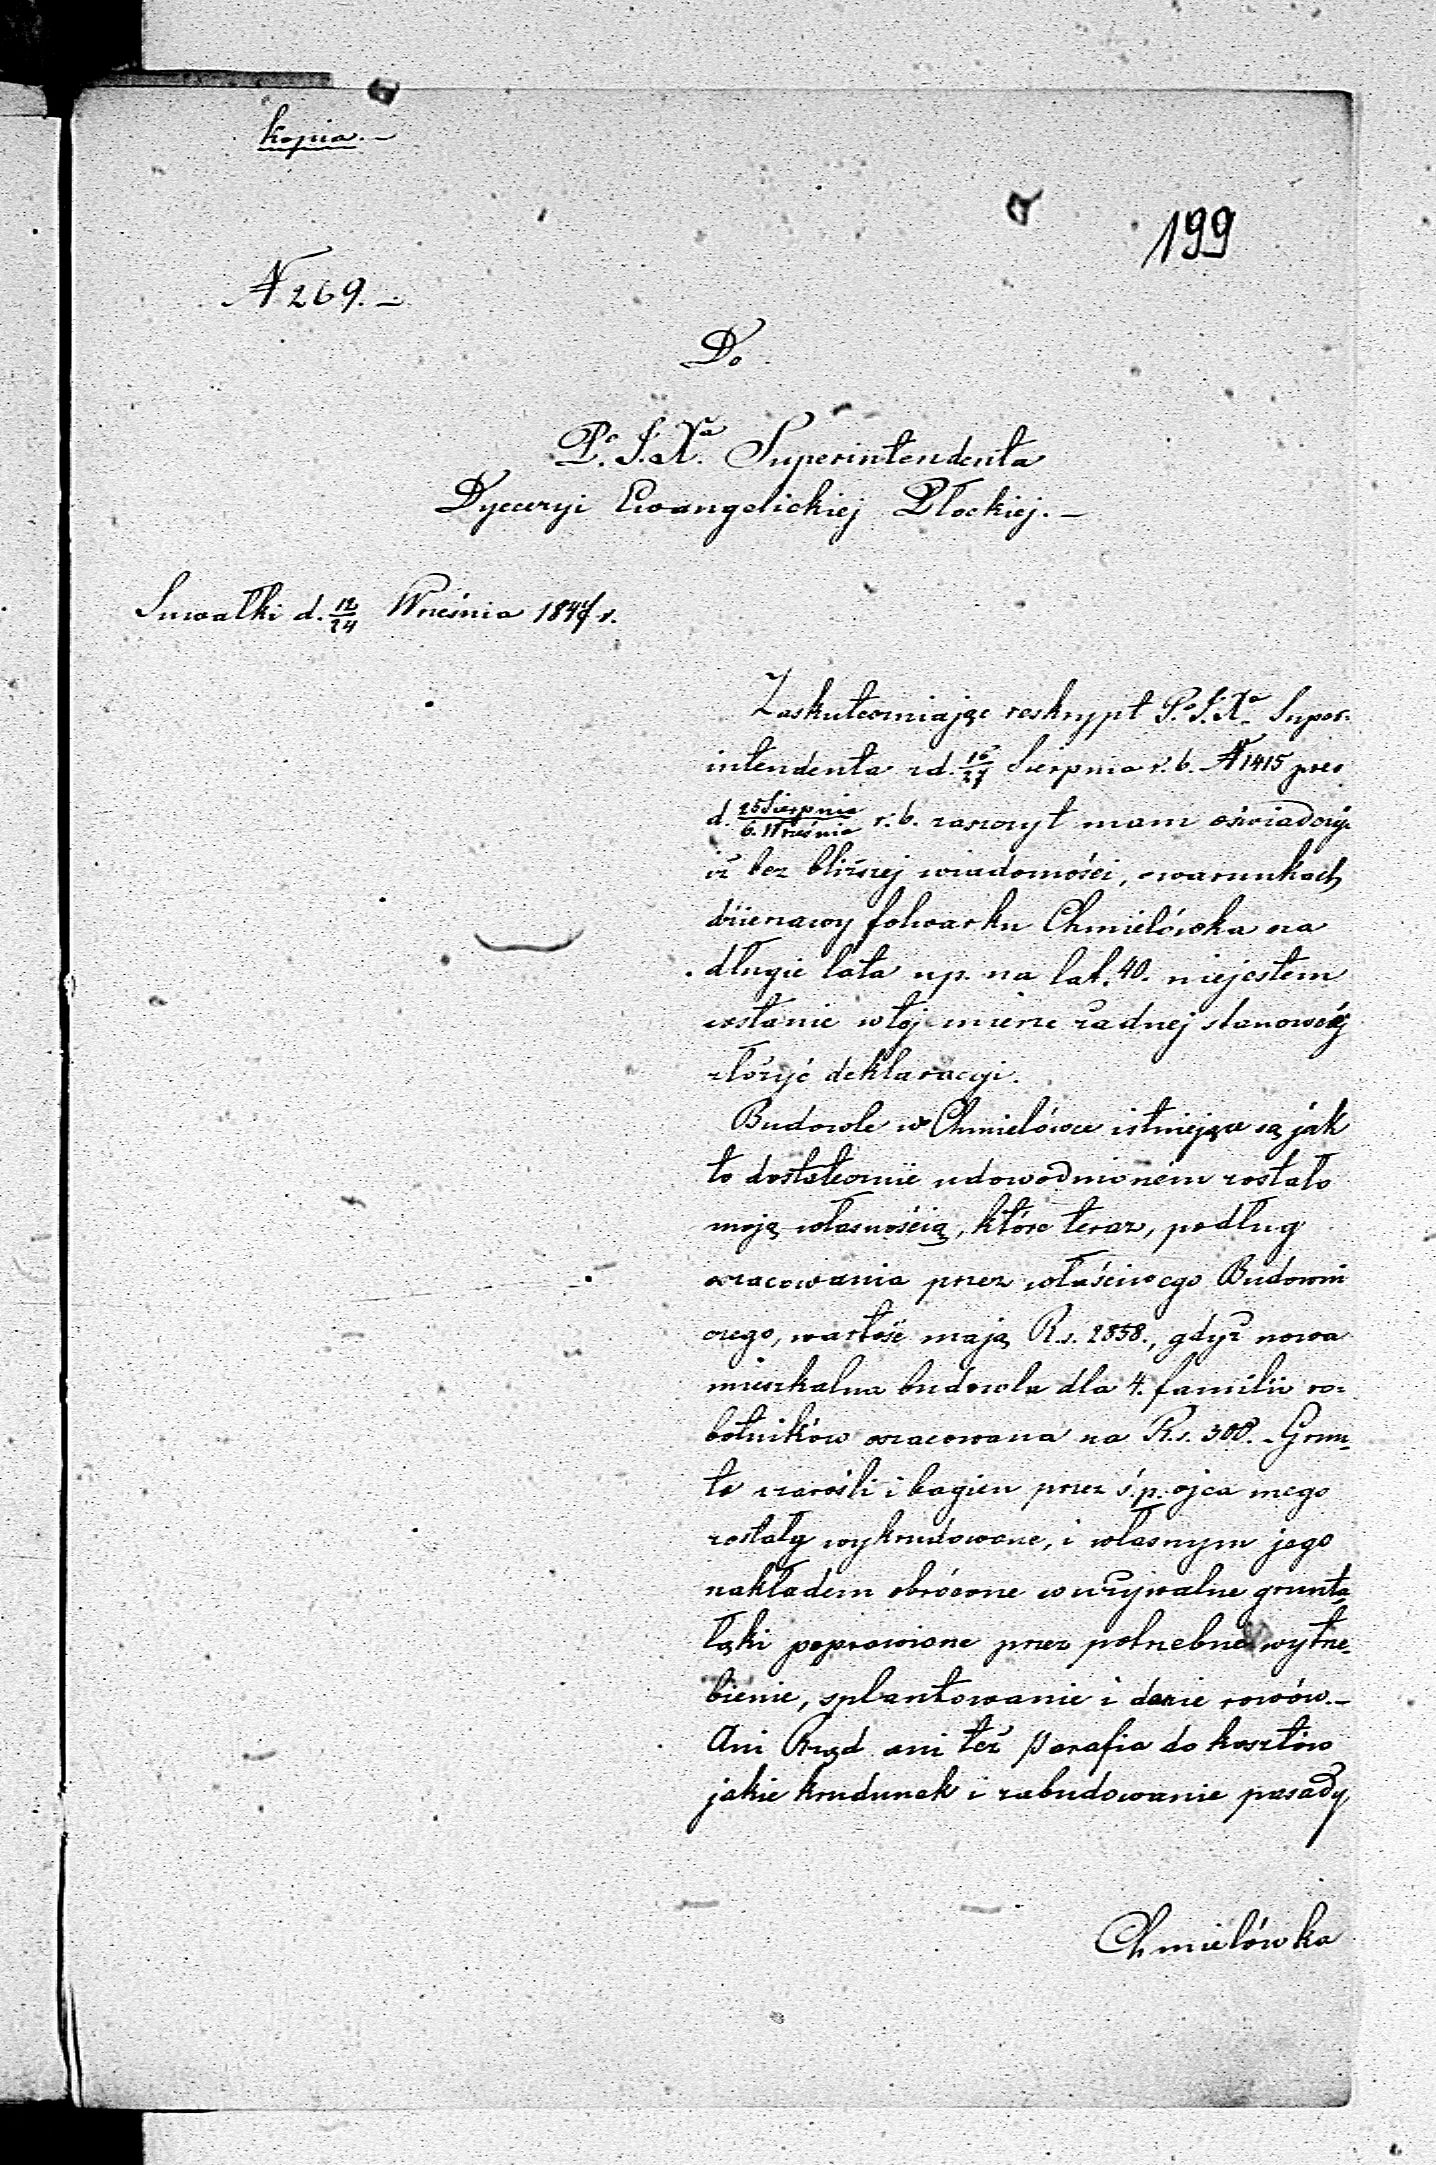 kopia.–
199
N 269.–
Do
P. J. Xa Superintendenta
Dyecezyi Ewangelickiej Płockiej.–
Suwałki d. 12/24 Września 1847 r.
Zaskuteczniając reskrypt P. J. Xa Super-
intendenta z d. 15/27 Sierpnia r. b. N 1415 prez
d. 25 Sierpnia/6. Września r. b. zaszczyt mam oświadczyć
iż bez bliższej wiadomości, o warunkach
dzierzawy folwarku Chmielówka na
długie lata np. na lat. 40. niejestem
wstanie w tej mierze żadnej stanowczej
złożyć deklaracyi.
Budowle w Chmielówce istniejące są jak
to dostatecznie udowodnionem zostało
moją własnością, które teraz, podług
oszacowania przez właściwego Budowni
czego, wartość mają R.s. 2858., gdyż nowa
mieszkalna budowla dla 4. familii ro-
botników oszacowana na R.s. 308. – Grun-
ta z zarośli i bagien przez ś. p. ojca mego
zostały wykrudowane, i własnym jego
nakładem obrócone w używalne grunta
łąki poprawione przez potrzebne wytrze-
bienie, splantowanie i danie rowów.–
Ani Rząd ani też Parafia do kosztów
jakie krudunek i zabudowanie posady
Chmielówka